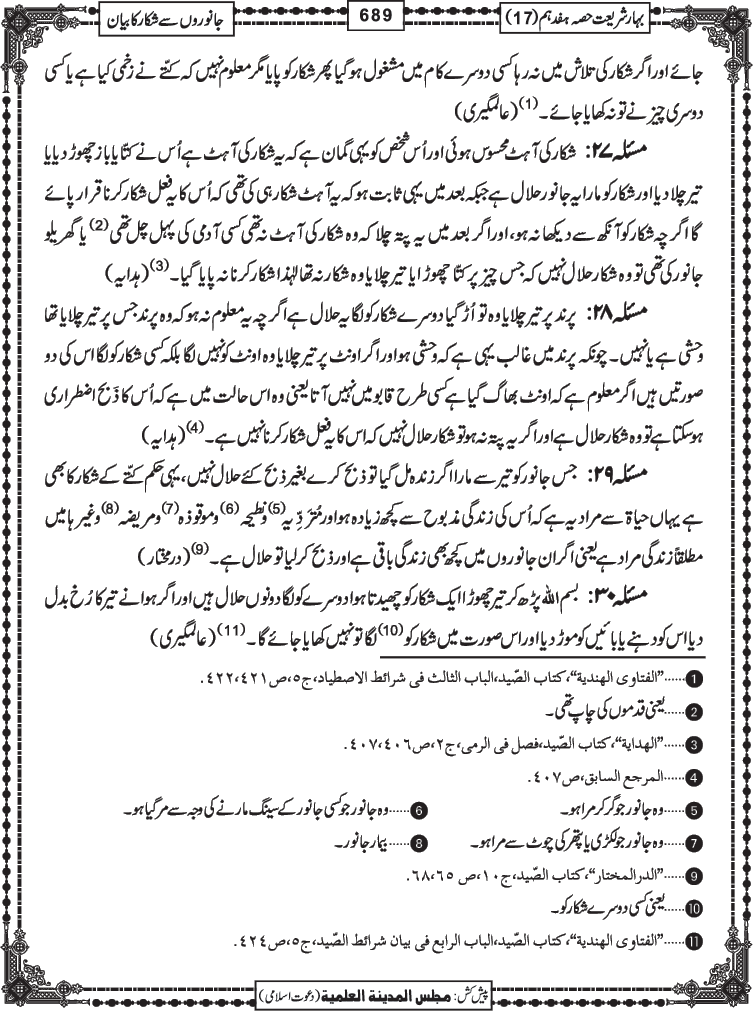 بہارشریعت حصہ ہفدہم (17)
689
جانوروں سے شکار کا بیان
جائے اور اگر شکار کی تلاش میں نہ رہا کسی دوسرے کام میں مشغول ہوگیا پھر شکار کو پایا مگر معلوم نہیں کہ کتے نے زخمی کیا ہے یا کسی
دوسری چیز نے تو نہ کھایا جائے۔(1) (عالمگیری)
مسئلہ ۲۷: شکار کی آہٹ محسوس ہوئی اور اُس شخص کو یہی گمان ہے کہ یہ شکار کی آہٹ ہے اُس نے کتا یا باز چھوڑ دیا یا
تیر چلا دیا اور شکار کو مارا یہ جانور حلال ہے جبکہ بعد میں یہی ثابت ہو کہ یہ آہٹ شکار ہی کی تھی کہ اُس کا یہ فعل شکار کرنا قرار پائے
گا اگرچہ شکار کو آنکھ سے دیکھا نہ ہو، اور اگر بعد میں یہ پتہ چلا کہ وہ شکار کی آہٹ نہ تھی کسی آدمی کی پہل چل تھی(2) یا گھریلو
جانور کی تھی تو وہ شکار حلال نہیں کہ جس چیز پر کتا چھوڑا یا تیر چلایا وہ شکار نہ تھا لہٰذا شکار کرنا نہ پایا گیا۔(3) (ہدایہ)
مسئلہ ۲۸: پرند پر تیر چلایا وہ تو اُڑ گیا دوسرے شکار کو لگا یہ حلال ہے اگرچہ یہ معلوم نہ ہو کہ وہ پرند جس پر تیر چلایا تھا
وحشی ہے یا نہیں۔ چونکہ پرند میں غالب یہی ہے کہ وحشی ہو اور اگر اونٹ پر تیر چلایا وہ اونٹ کو نہیں لگا بلکہ کسی شکار کو لگا اس کی دو
صورتیں ہیں اگر معلوم ہے کہ اونٹ بھاگ گیا ہے کسی طرح قابو میں نہیں آتا یعنی وہ اس حالت میں ہے کہ اُس کا ذَبح اضطراری
ہوسکتا ہے تو وہ شکار حلال ہے اور اگر یہ پتہ نہ ہو تو شکار حلال نہیں کہ اس کا یہ فعل شکار کرنا نہیں ہے۔(4) (ہدایہ)
مسئلہ ۲۹: جس جانور کو تیر سے مارا اگر زندہ مل گیا تو ذبح کرے بغیر ذبح کئے حلال نہیں، یہی حکم کتے کے شکار کا بھی
ہے یہاں حیاۃ سے مراد یہ ہے کہ اُس کی زندگی مذبوح سے کچھ زیادہ ہو اور مُتَرَدِّیہ(5) و نطیحہ(6) و موقوذہ(7) و مریضہ(8) وغیرہا میں
مطلقاً زندگی مراد ہے یعنی اگر ان جانوروں میں کچھ بھی زندگی باقی ہے اور ذبح کرلیا تو حلال ہے۔(9) (درمختار)
مسئلہ ۳۰: بسم اللہ پڑھ کر تیر چھوڑا ایک شکار کو چھیدتا ہوا دوسرے کو لگا دونوں حلال ہیں اور اگر ہوا نے تیر کا رُخ بدل
دیا اس کو دہنے یا بائیں کو موڑ دیا اور اس صورت میں شکار کو(10) لگا تو نہیں کھایا جائے گا۔(11) (عالمگیری)
1......"الفتاوی الهندیة"، کتاب الصّید،الباب الثالث فی شرائط الاصطیاد،ج٥،ص٤٢١،٤٢٢.
2......یعنی قدموں کی چاپ تھی۔
3......"الهدایة"، کتاب الصّید،فصل فی الرمی،ج٢،ص٤٠٦،٤٠٧.
4......المرجع السابق،ص٤٠٧.
5......وہ جانور جو گر کر مرا ہو۔ 6......وہ جانور جو کسی جانور کے سینگ مارنے کی وجہ سے مر گیا ہو۔
7......وہ جانور جو لکڑی یا پتھر کی چوٹ سے مرا ہو۔ 8......بیمار جانور۔
9......"الدرالمختار"، کتاب الصّید،ج١٠،ص ٦٥،٦٨.
10......یعنی کسی دوسرے شکار کو۔
11......"الفتاوی الهندیة"، کتاب الصّید،الباب الرابع فی بیان شرائط الصّید،ج٥،ص٤٢٤.
پیش کش: مجلس المدینة العلمیة (دعوت اسلامی)